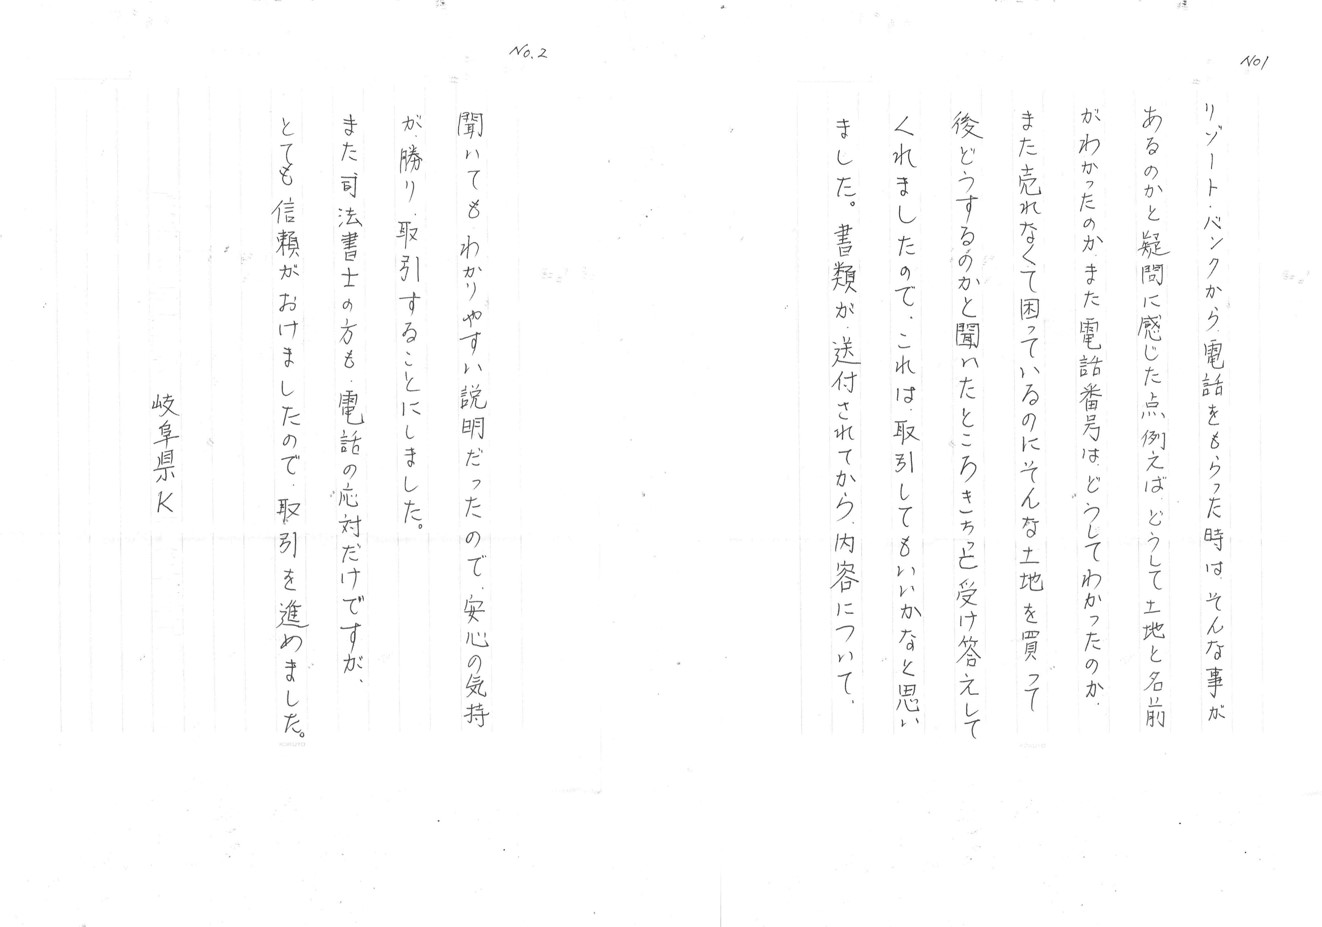 No1
リゾート・バンクから、電話をもらった時は、そんな事が
あるのかと疑問に感じた点、例えば、どうして土地と名前
がわかったのか、また電話番号は、どうしてわかったのか、
また売れなくて困っているのにそんな土地を買って
後どうするのかと聞いたところきちっと受け答えして
くれましたので、これは、取引してもいいかなと思い
ました。書類が、送付されてから、内容について、
No.2
聞いてもわかりやすい説明だったので、安心の気持
が、勝り、取引することにしました。
また司法書士の方も、電話の応対だけですが、
とても信頼がおけましたので、取引を進めました。
岐阜県K